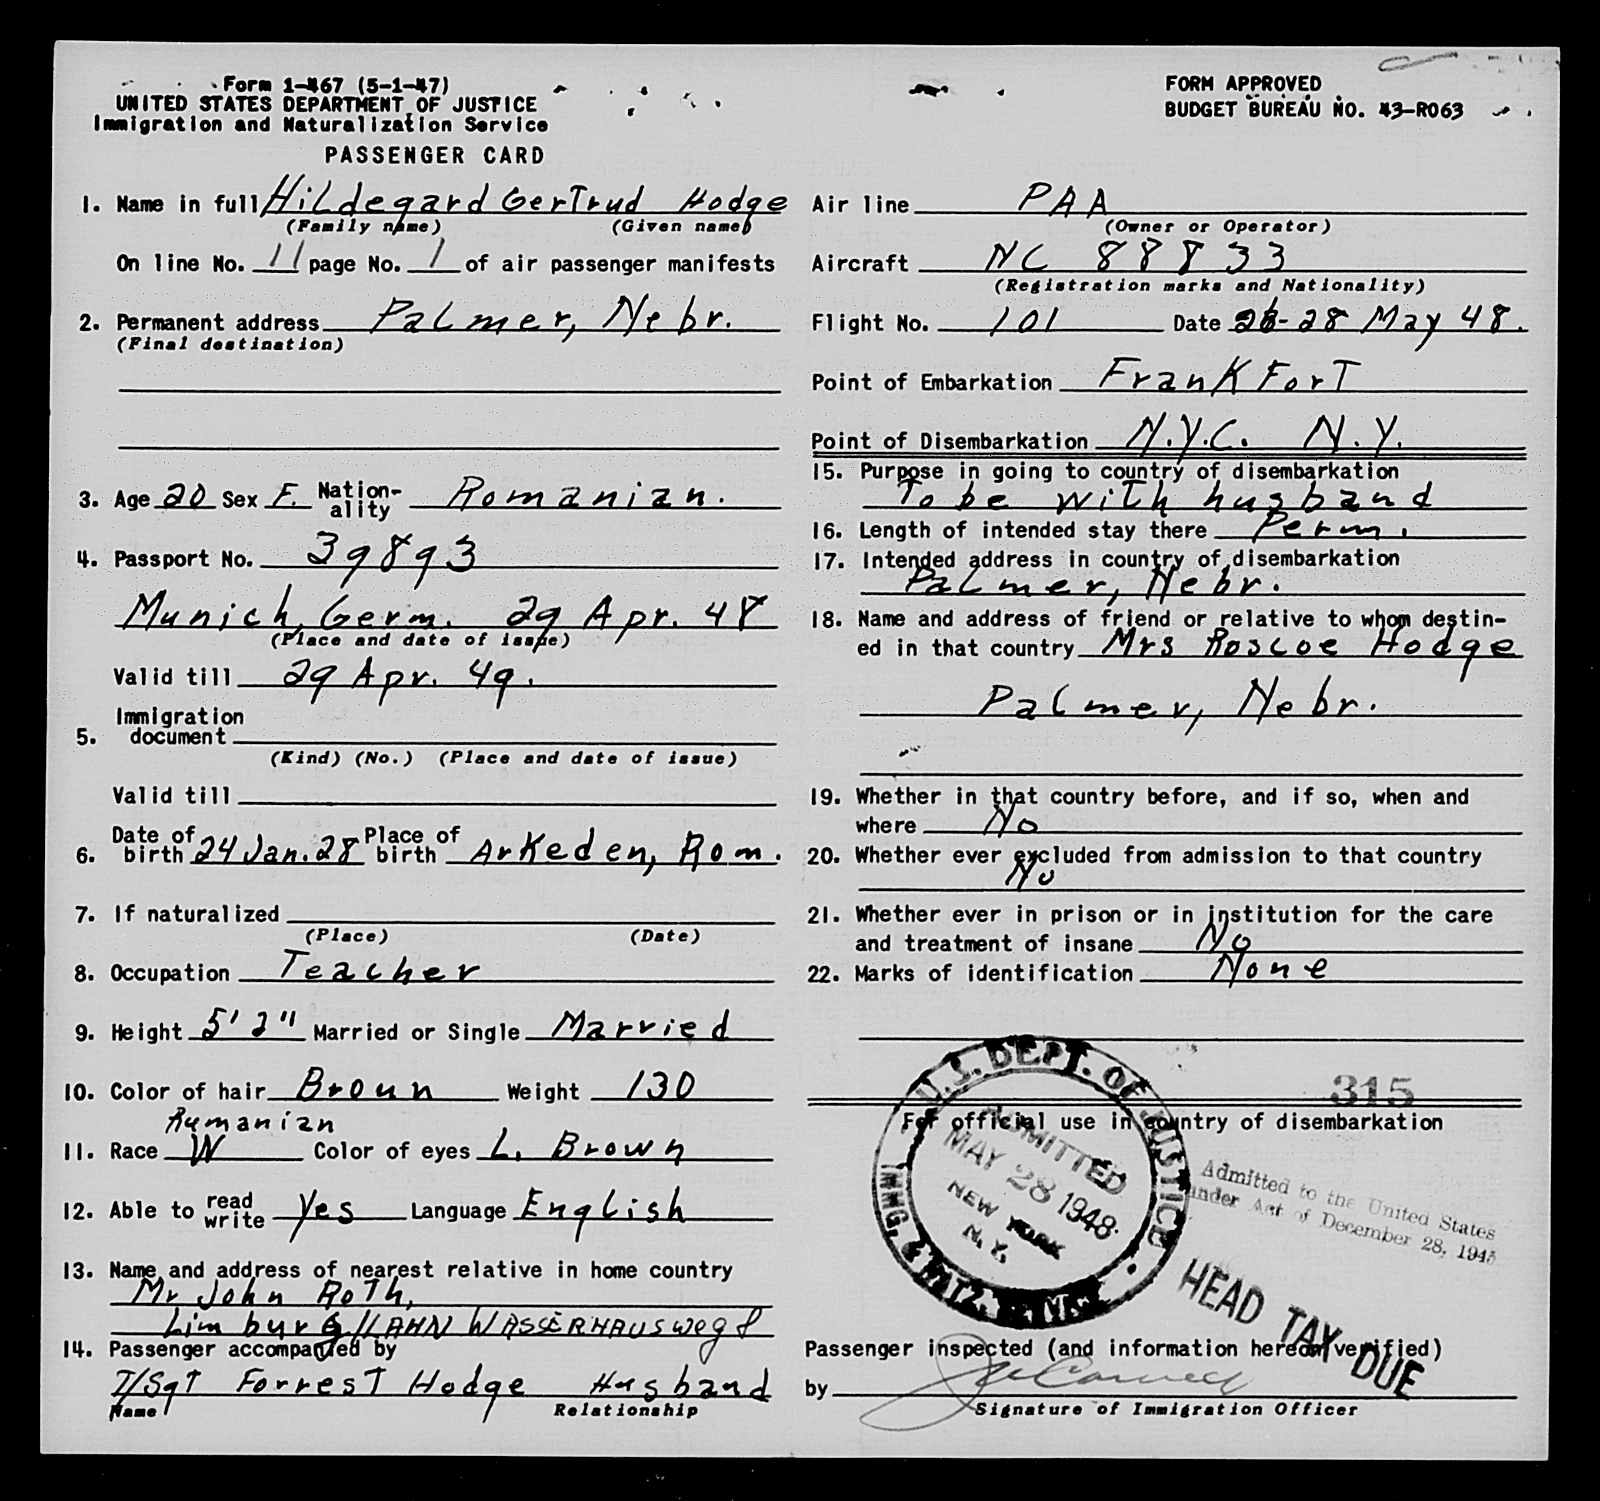 Form 1-467 (5-1-47)
UNITED STATES DEPARTMENT OF JUSTICE
Immigration and Naturalization Service
PASSENGER CARD
FORM APPROVED
BUDGET BUREAU NO. 43-R063
1. Name in full Hildegard Gertrud Hodge
(Family name) (Given name)
On line No. 11 page No. 1 of air passenger manifests
2. Permanent address Palmer, Nebr.
(Final destination)
3. Age 20 Sex F. Nation-ality Romanian.
4. Passport No. 39893
Munich, Germ. 29 Apr. 48
(Place and date of issue)
Valid till 29 Apr. 49.
5. Immigration document
(Kind) (No.) (Place and date of issue)
Valid till
6. Date of birth 24 Jan. 28 Place of birth Arkeden, Rom.
7. If naturalized
(Place) (Date)
8. Occupation Teacher
9. Height 5' 2" Married or Single Married
10. Color of hair Broun Weight 130
Rumanian
11. Race W Color of eyes L. Brown
12. Able to read write Yes Language English
13. Name and address of nearest relative in home country
Mr John Roth,
Limburg/LAHN WASSERHAUSweg 8
14. Passenger accompanied by
T/Sgt Forrest Hodge Husband
Name Relationship
Air line PAA
(Owner or Operator)
Aircraft NC 88833
(Registration marks and Nationality)
Flight No. 101 Date 26-28 May 48.
Point of Embarkation FrankFort
Point of Disembarkation N.Y.C. N.Y.
15. Purpose in going to country of disembarkation
To be with husband
16. Length of intended stay there Perm.
17. Intended address in country of disembarkation
Palmer, Nebr.
18. Name and address of friend or relative to whom destin-
ed in that country Mrs Roscoe Hodge
Palmer, Nebr.
19. Whether in that country before, and if so, when and
where No
20. Whether ever excluded from admission to that country
No
21. Whether ever in prison or in institution for the care
and treatment of insane No
22. Marks of identification None
315
For official use in country of disembarkation
U.S. DEPT. OF JUSTICE
IMMG. & NATZ.
ADMITTED
MAY 28 1948
NEW YORK
N.Y.
Admitted to the United States
under Act of December 28, 1945
HEAD TAX DUE
Passenger inspected (and information hereon verified)
by
Signature of Immigration Officer